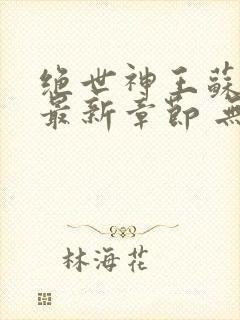 绝世神王蘇
最新章節 無
林海花